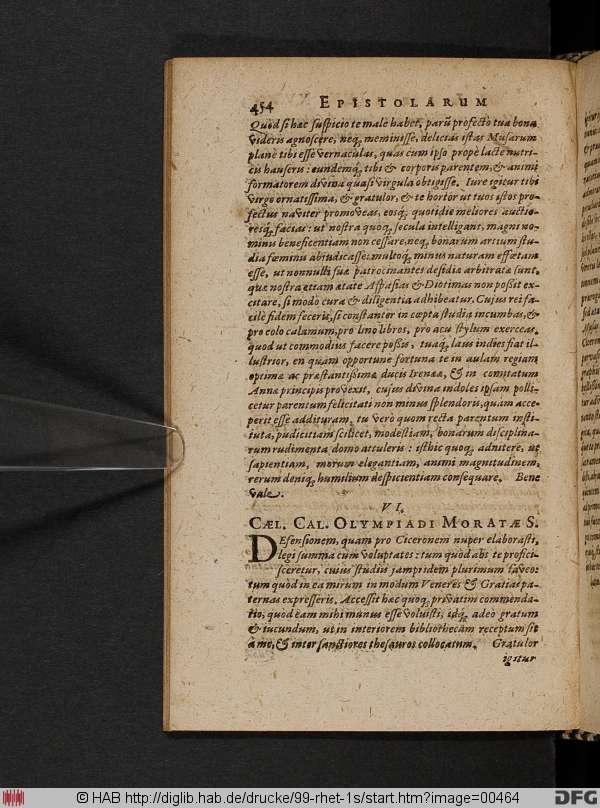 454 EPISTOLARUM
Quòd si hæc suspicio te malè habet, parũ profectò tua bona
videris agnoscere, neq; meminisse, delicias istas Musarum
planè tibi esse vernaculas, quas cum ipso propè lacte nutri-
cis hauseris: eundemq; tibi & corporis parentem, & animi
formatorem divina quasi virgula obtigisse. Iure igitur tibi
virgo ornatissima, & gratulor, & te hortor ut tuos istos pro-
fectus naviter promoveas, eosq; quotidie meliores auctio-
resq; facias: ut nostra quoq; secula intelligant, magni no-
minis beneficentiam non cessare, neq; bonarum artium stu-
dia fœminis abiudicasse: multoq; minus naturam effœtam
esse, ut nonnulli suæ patrocinantes desidiæ arbitrati sunt,
quæ nostra etiam ætate Aspasias & Diotimas non poßit ex-
citare, si modò cura & diligentia adhibeatur. Cujus rei fa-
cilè fidem feceris, si constanter in cœpta studia incumbas, &
pro colo calamum, pro lino libros, pro acu stylum exerceas,
quod ut commodius facere poßis, tuaq; laus indies fiat il-
lustrior, en quam opportune fortuna te in aulam regiam
optimæ ac præstantißimæ ducis Ireneæ, & in comitatum
Annæ principis provexit, cujus divina indoles ipsam polli-
cetur parentum felicitati non minus splendoris, quam acce-
perit esse addituram, tu verò quom recta parentum insti-
tuta, pudicitiam scilicet, modestiam, bonarum disciplina-
rum rudimenta domo attuleris: isthic quoq; adnitere, ut
sapientiam, morum elegantiam, animi magnitudinem,
rerum deniq; humilium despicientiam consequare. Bene
vale.
VI.
CÆL. CAL. OLYMPIADI MORATÆ S.
DEfensionem, quam pro Cicerone nuper elaborasti,
legi summa cum voluptate: tum quòd abs te profici-
sceretur, cujus studiis jampridem plurimum faveo:
tum quòd in ea mirum in modum Veneres & Gratias pa-
ternas expresseris. Accessit hæc quoq; privatim commenda-
tio, quòd eam mihi munus esse voluisti, idq; adeò gratum
& iucundum, ut in interiorem bibliothecam receptum sit
à me, & inter sanctiores thesauros collocatum. Gratulor
igitur
© HAB http://diglib.hab.de/drucke/99-rhet-1s/start.htm?image=00464
DFG